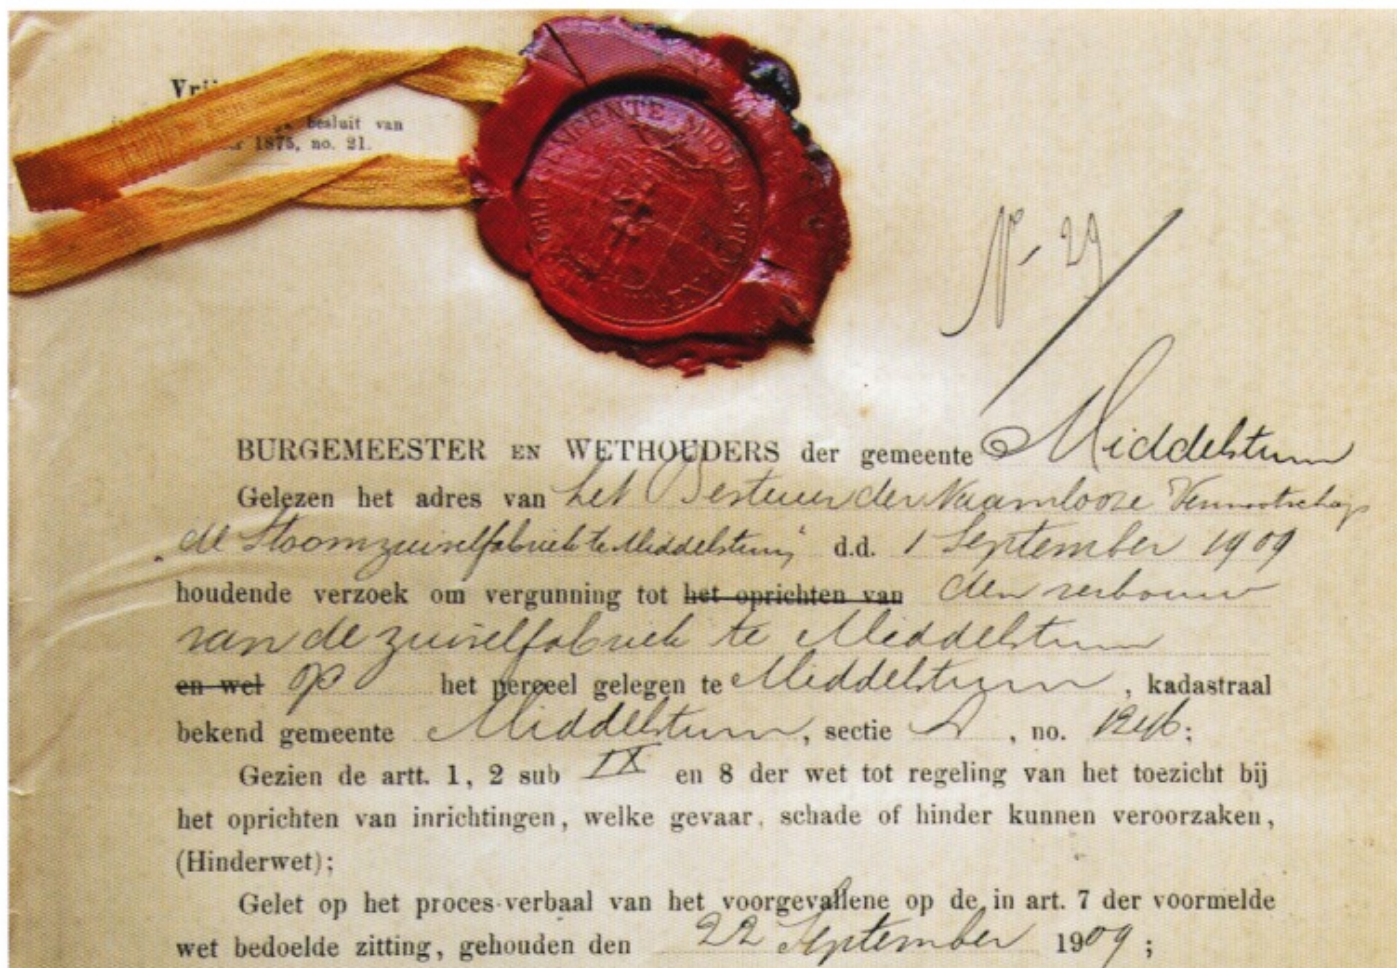 Vrij
besluit van
1875, no. 21.
GEMEENTE MIDDELSTUM
No. 29
BURGEMEESTER EN WETHOUDERS der gemeente Middelstum
Gelezen het adres van het Bestuur der Naamlooze Vennootschap
„de Stoomzuivelfabriek te Middelstum" d.d. 1 September 1909
houdende verzoek om vergunning tot het oprichten van den verbouw
van de zuivelfabriek te Middelstum
en wel op het perceel gelegen te Middelstum, kadastraal
bekend gemeente Middelstum, sectie , no. 1246;
Gezien de artt. 1, 2 sub IX en 8 der wet tot regeling van het toezicht bij
het oprichten van inrichtingen, welke gevaar, schade of hinder kunnen veroorzaken,
(Hinderwet);
Gelet op het proces-verbaal van het voorgevallene op de in art. 7 der voormelde
wet bedoelde zitting, gehouden den 22 September 1909;